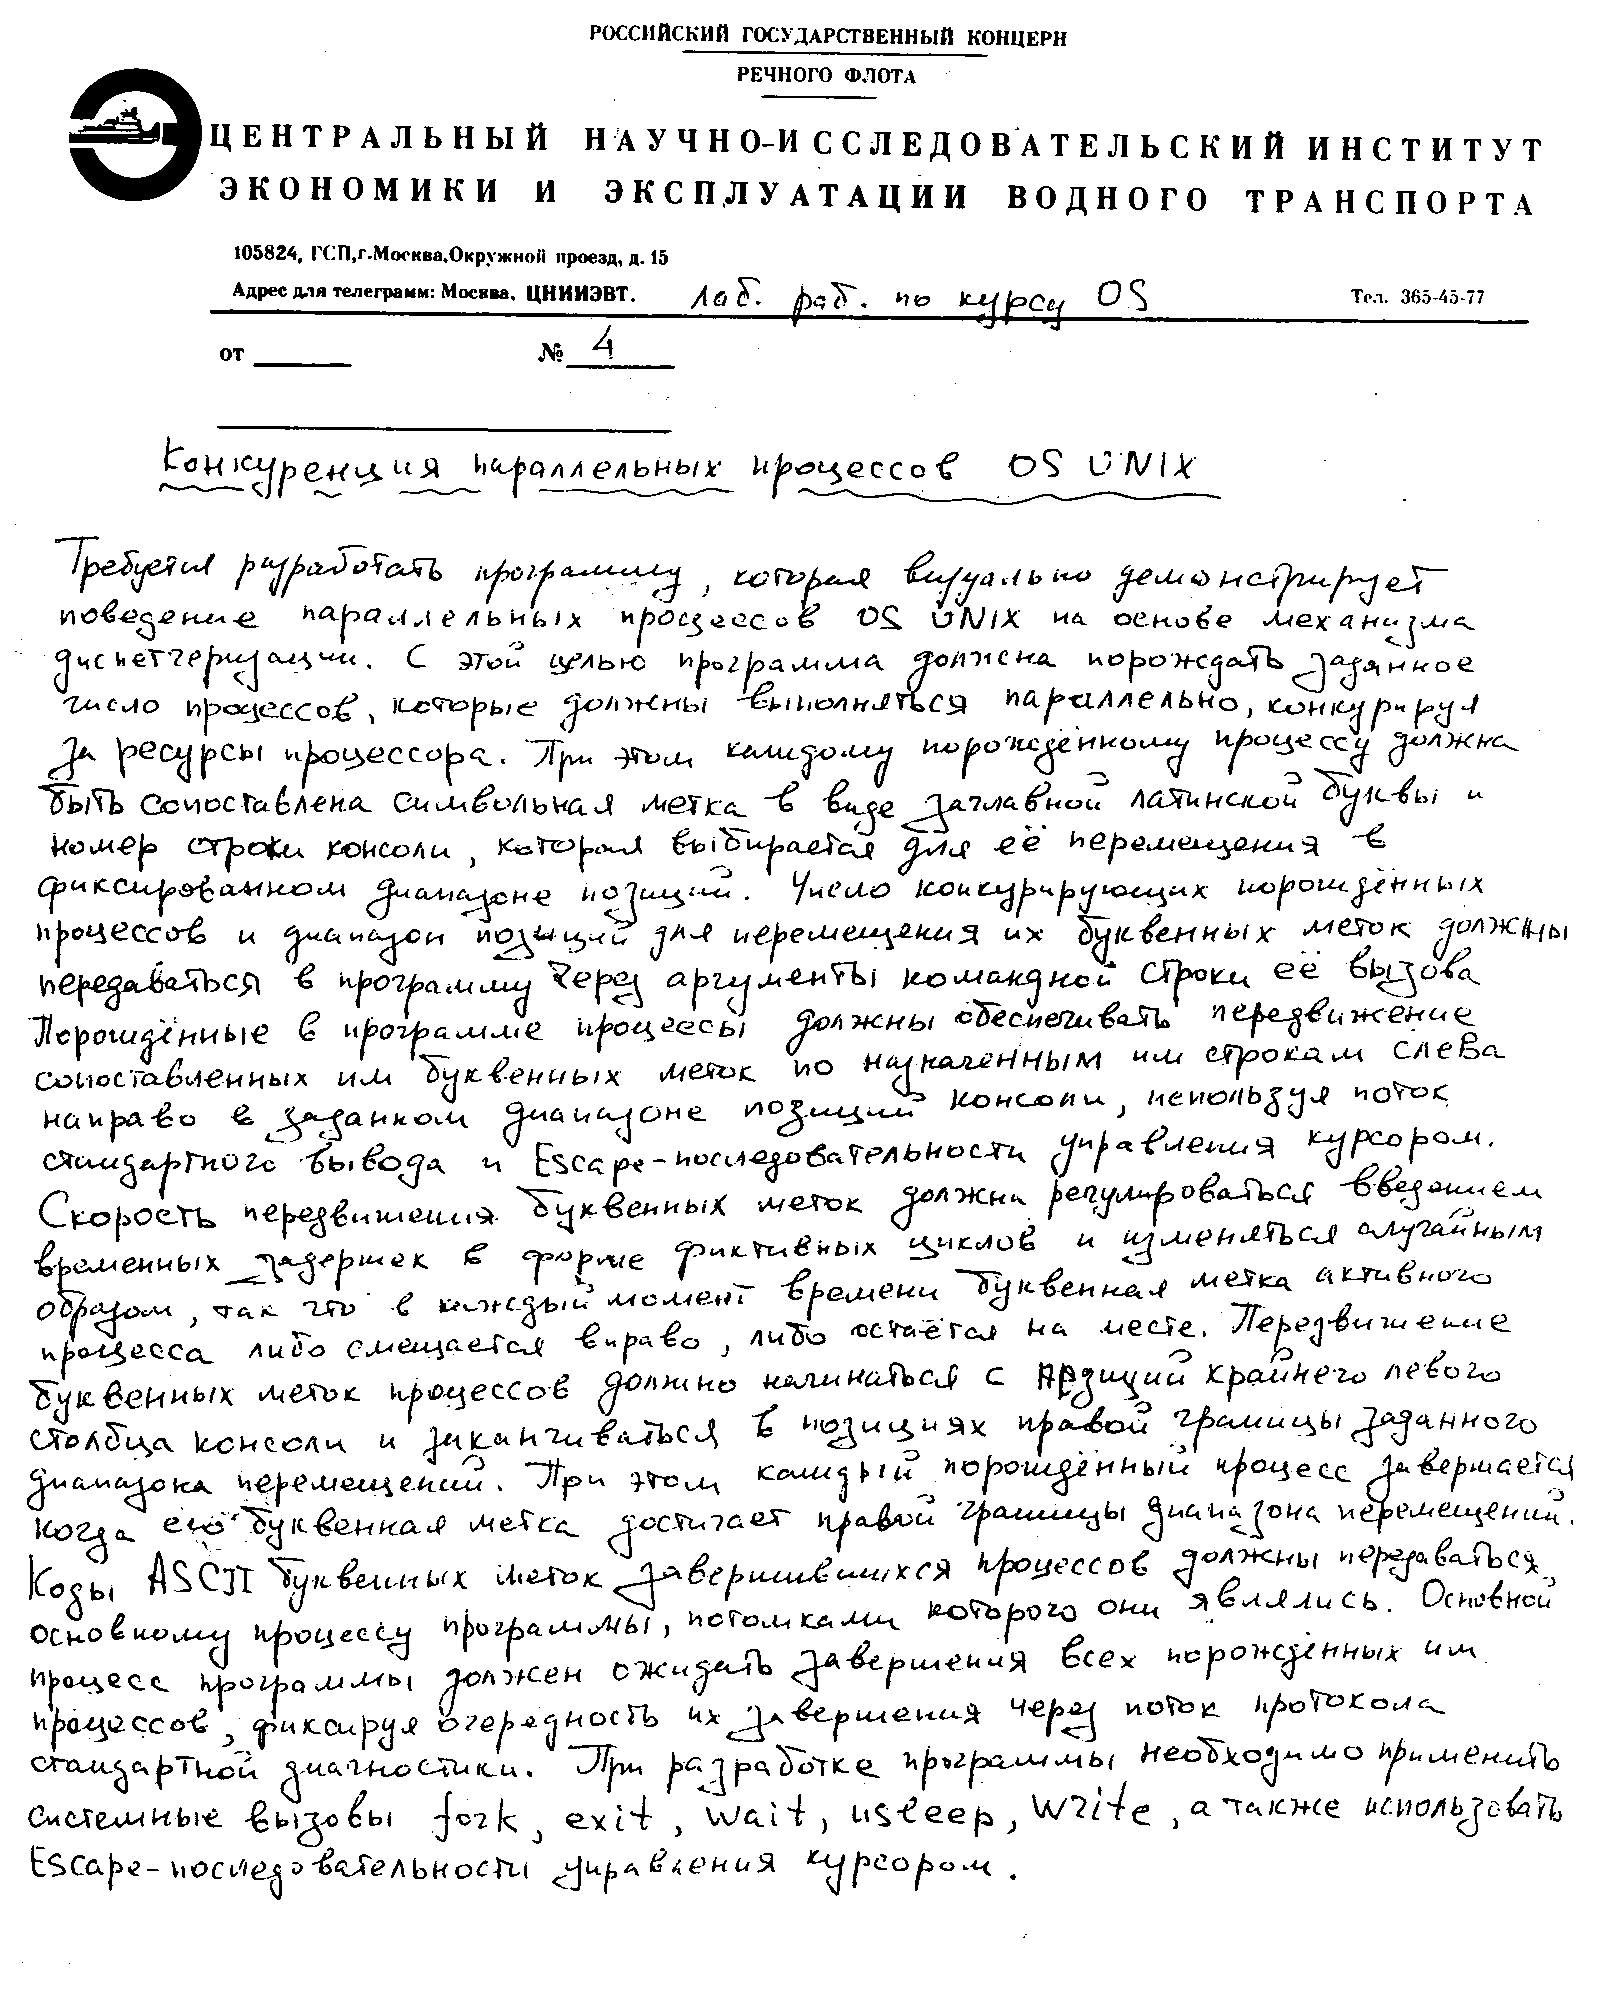 РОССИЙСКИЙ ГОСУДАРСТВЕННЫЙ КОНЦЕРН
РЕЧНОГО ФЛОТА
ЦЕНТРАЛЬНЫЙ НАУЧНО-ИССЛЕДОВАТЕЛЬСКИЙ ИНСТИТУТ
ЭКОНОМИКИ И ЭКСПЛУАТАЦИИ ВОДНОГО ТРАНСПОРТА
105824, ГСП, г. Москва, Окружной проезд, д. 15
Адрес для телеграмм: Москва, ЦНИИЭВТ. лаб. раб. по курсу OS Тел. 365-45-77
от № 4
Конкуренция параллельных процессов OS UNIX
Требуется разработать программу, которая визуально демонстрирует
поведение параллельных процессов OS UNIX на основе механизма
диспетчеризации. С этой целью программа должна порождать заданное
число процессов, которые должны выполняться параллельно, конкурируя
за ресурсы процессора. При этом каждому порождённому процессу должна
быть сопоставлена символьная метка в виде заглавной латинской буквы и
номер строки консоли, которая выбирается для её перемещения в
фиксированном диапазоне позиций. Число конкурирующих порождённых
процессов и диапазон позиций для перемещения их буквенных меток должны
передаваться в программу через аргументы командной строки её вызова
Порождённые в программе процессы должны обеспечивать передвижение
сопоставленных им буквенных меток по назначенным им строкам слева
направо в заданном диапазоне позиций консоли, используя поток
стандартного вывода и Escape-последовательности управления курсором.
Скорость передвижения буквенных меток должна регулироваться введением
временных задержек в форме фиктивных циклов и изменяться случайным
образом, так что в каждый момент времени буквенная метка активного
процесса либо смещается вправо, либо остаётся на месте. Передвижение
буквенных меток процессов должно начинаться с позиций крайнего левого
столбца консоли и заканчиваться в позициях правой границы заданного
диапазона перемещений. При этом каждый порождённый процесс завершается
когда его буквенная метка достигает правой границы диапазона перемещений.
Коды ASCII буквенных меток завершившихся процессов должны передаваться
основному процессу программы, потомками которого они являлись. Основной
процесс программы должен ожидать завершения всех порождённых им
процессов, фиксируя очередность их завершения через поток протокола
стандартной диагностики. При разработке программы необходимо применить
системные вызовы fork, exit, wait, usleep, write, а также использовать
Escape-последовательности управления курсором.